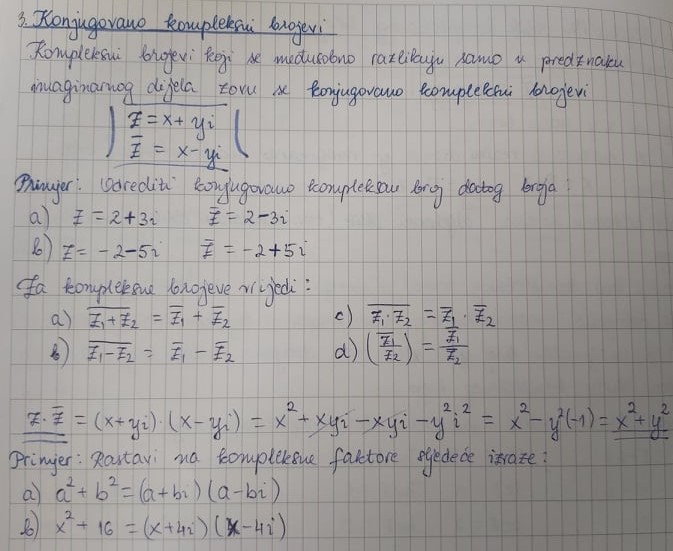 3. Konjugovano kompleksni brojevi
Kompleksni brojevi koji se međusobno razlikuju samo u predznaku
imaginarnog dijela zovu se konjugovano kompleksni brojevi
z = x + yi
z̅ = x - yi
Primjer: Odrediti konjugovano kompleksan broj datog broja:
a) z = 2+3i z̅ = 2-3i
b) z = -2-5i z̅ = -2+5i
Za kompleksne brojeve vrijedi:
a) \overline{z₁+z₂} = z̅₁ + z̅₂ c) \overline{z₁·z₂} = z̅₁ · z̅₂
b) \overline{z₁-z₂} = z̅₁ - z̅₂ d) \overline{(z₁/z₂)} = z̅₁/z̅₂
z·z̅ = (x+yi)·(x-yi) = x² + xyi - xyi - y²i² = x² - y²(-1) = x² + y²
Primjer: Rastavi na kompleksne faktore sljedeće izraze:
a) a² + b² = (a+bi)(a-bi)
b) x² + 16 = (x+4i)(x-4i)